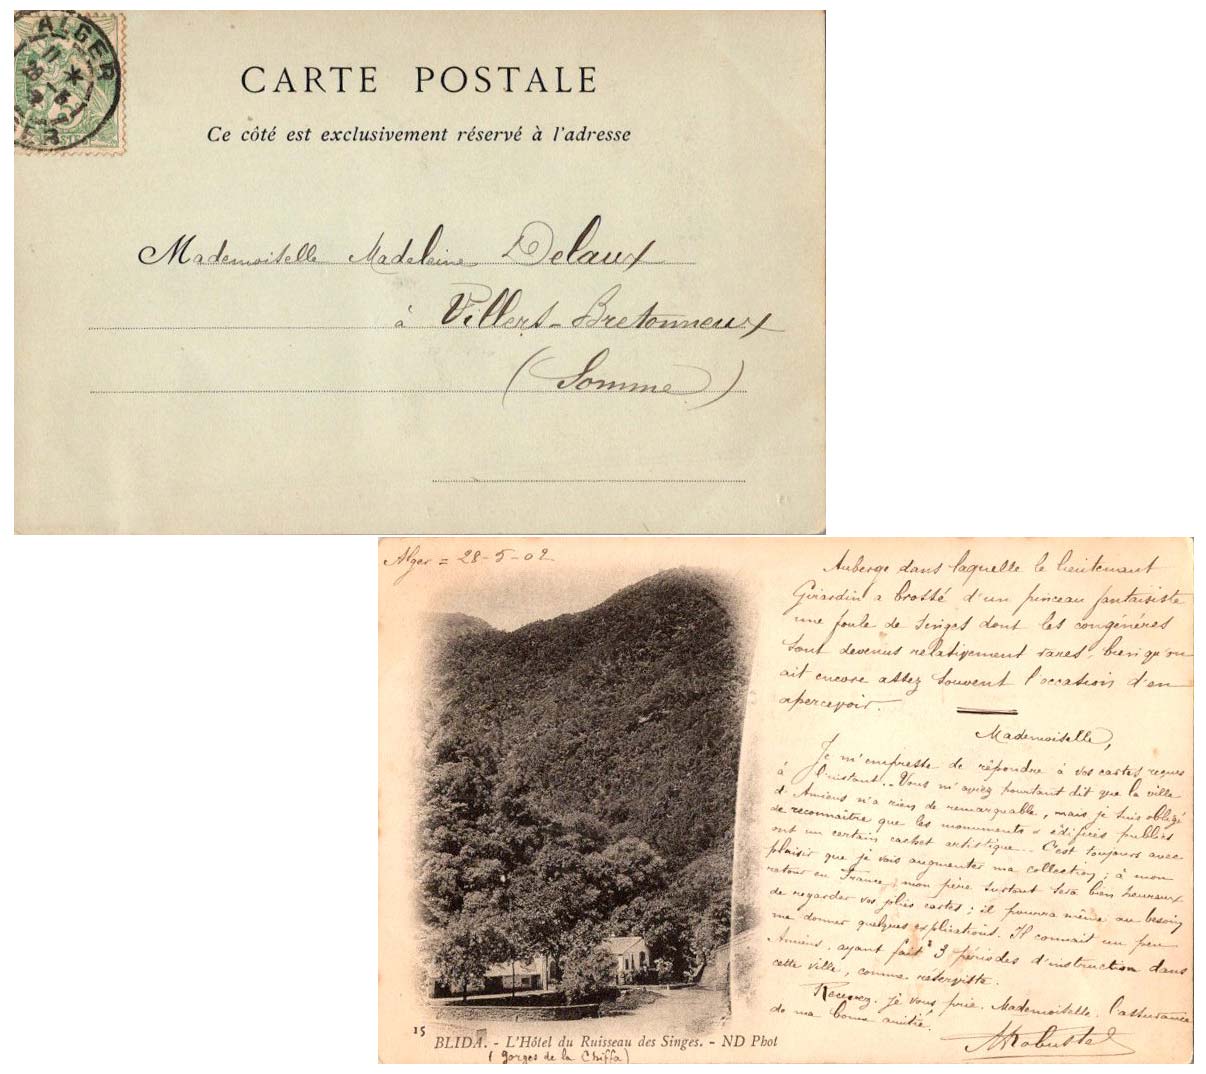 ALGER
CARTE POSTALE
Ce côté est exclusivement réservé à l'adresse
Mademoiselle Madeleine Delaux
à Villers-Bretonneux
(Somme)
Alger = 28-5-02
Auberge dans laquelle le lieutenant
Girardin a brossé d'un pinceau fantaisiste
une foule de singes dont les congénères
sont devenus relativement rares, bien qu'on
ait encore assez souvent l'occasion d'en
apercevoir.
Mademoiselle,
Je m'empreste de répondre à vos cartes reçues
à l'instant. Vous m'aviez pourtant dit que la ville
d'Amiens n'a rien de remarquable, mais je suis obligé
de reconnaître que les monuments & édifices publics
ont un certain cachet artistique. C'est toujours avec
plaisir que je vois augmenter ma collection ; à mon
retour en France, mon père surtout sera bien heureux
de regarder vos jolies cartes ; il pourra même au besoin
me donner quelques explications. Il connait un peu
Amiens, ayant fait 3 périodes d'instruction dans
cette ville, comme réserviste.
Recevez, je vous prie, Mademoiselle, l'assurance
de ma bonne amitié.
ARobustel
15 BLIDA. - L'Hôtel du Ruisseau des Singes. - ND Phot
(Gorges de la Chiffa)